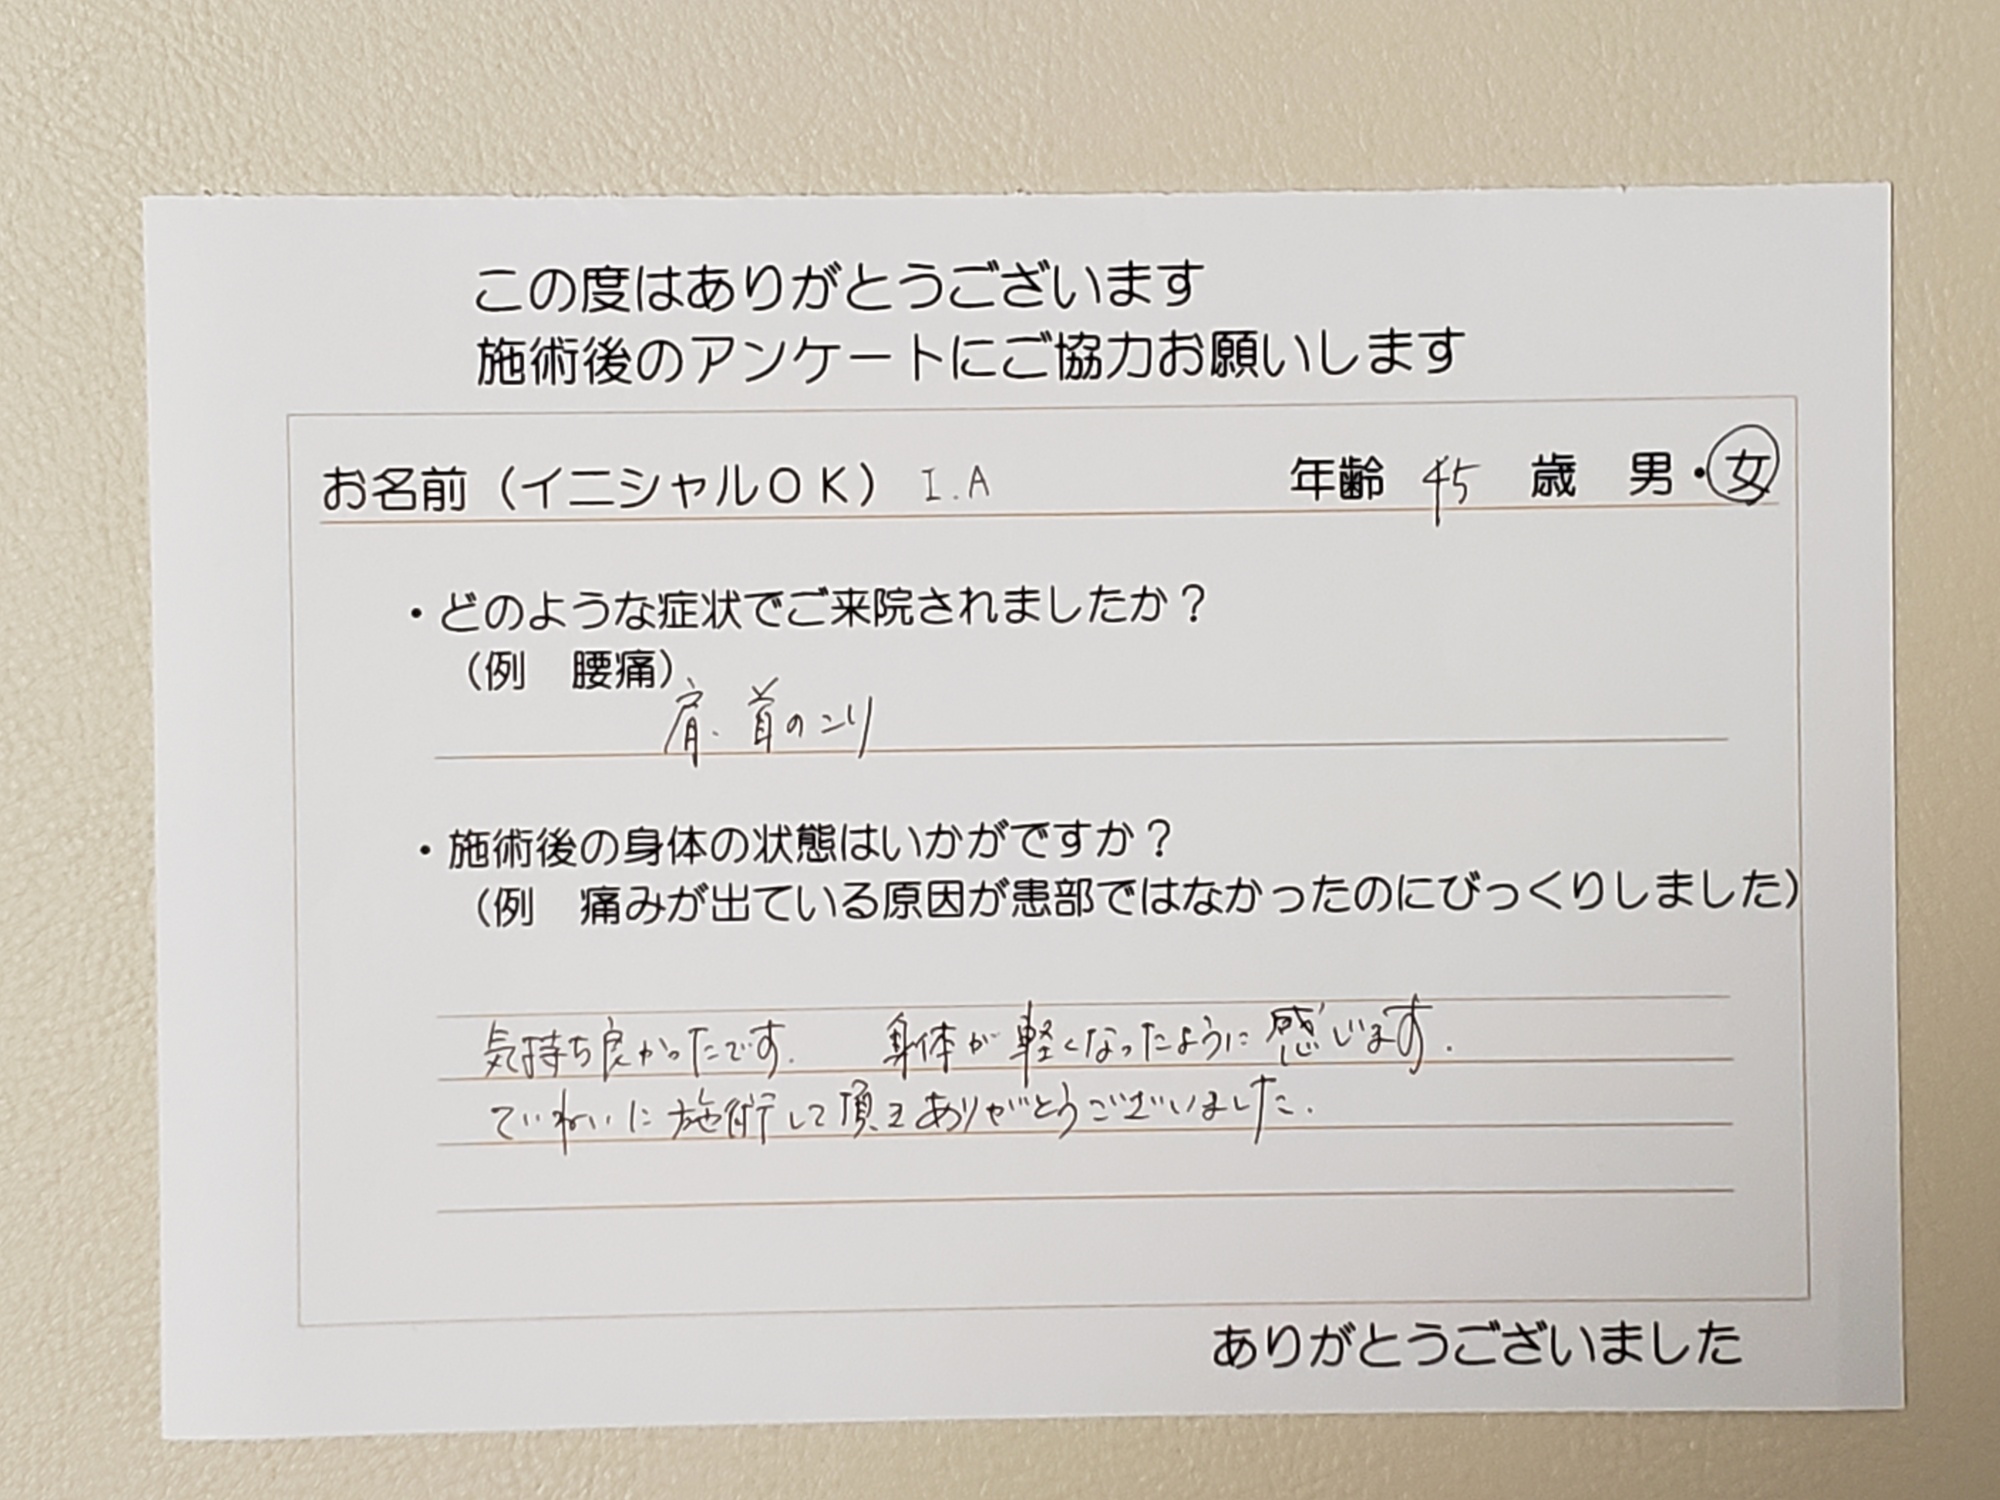 この度はありがとうございます
施術後のアンケートにご協力お願いします
お名前（イニシャルＯＫ） I.A 年齢 45 歳 男・女
・どのような症状でご来院されましたか？
（例　腰痛）
肩、首のこり
・施術後の身体の状態はいかがですか？
（例　痛みが出ている原因が患部ではなかったのにびっくりしました）
気持ち良かったです。 身体が軽くなったように感じます。
ていねいに施術して頂きありがとうございました。
ありがとうございました